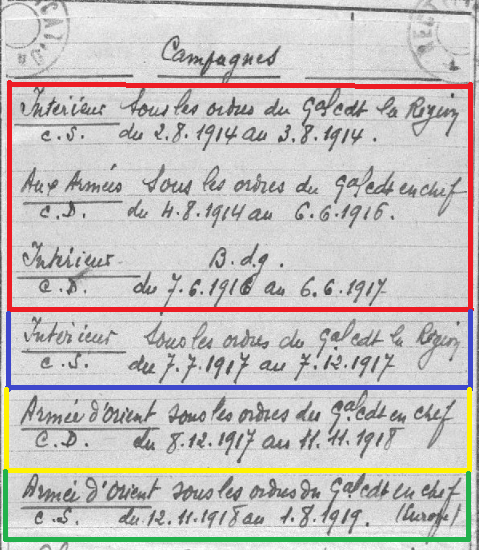 Campagnes
Intérieur Sous les ordres du Gᵃˡ cdt la Région
C.S. du 2.8.1914 au 3.8.1914.
Aux Armées Sous les ordres du Gᵃˡ cdt en chef
C.D. du 4.8.1914 au 6.6.1916.
Intérieur B.dg.
C.D. du 7.6.1916 au 6.6.1917
Intérieur Sous les ordres du Gᵃˡ cdt la Région
C.S. du 7.7.1917 au 7.12.1917
Armée d'Orient sous les ordres du Gᵃˡ cdt en chef
C.D. du 8.12.1917 au 11.11.1918
Armée d'Orient sous les ordres du Gᵃˡ cdt en chef
C.S. du 12.11.1918 au 1.8.1919. (Europe)